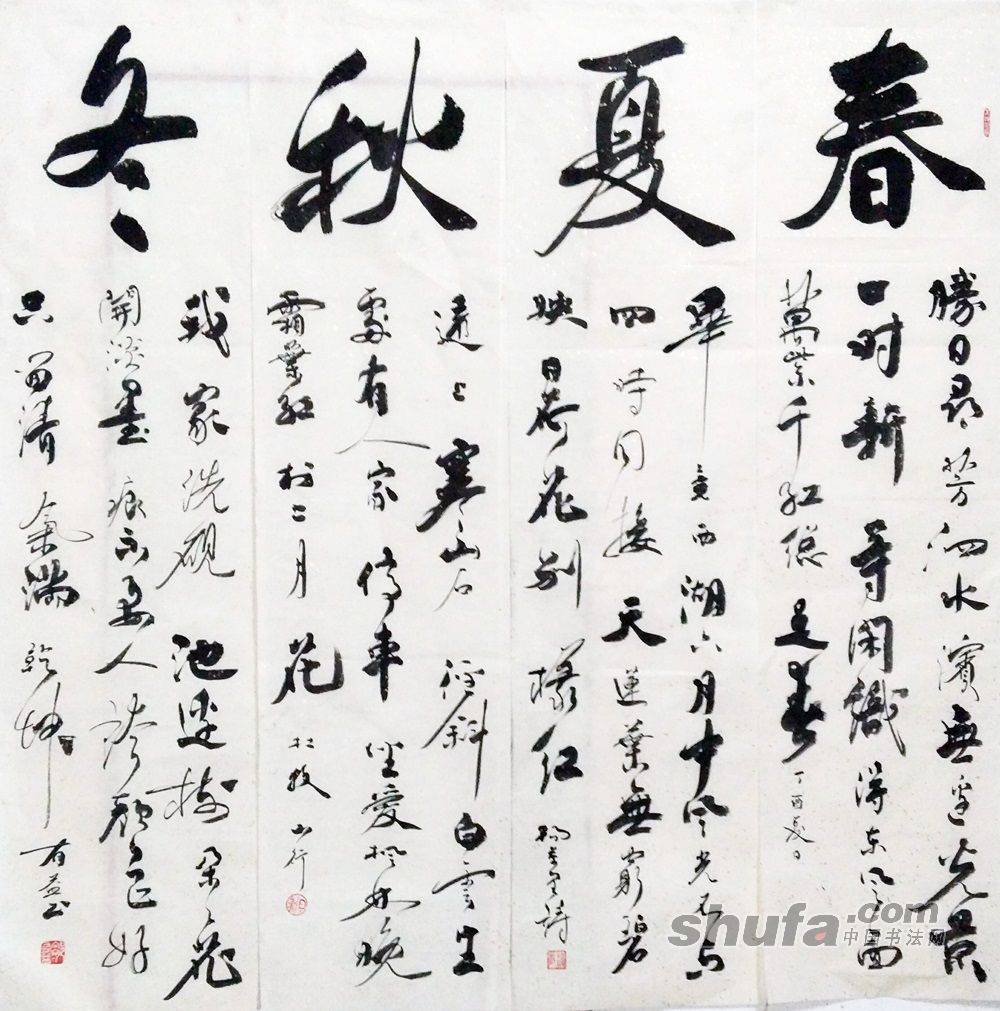 春
勝日尋芳泗水濱無边光景
一时新等闲識得东风面
萬紫千红總是春 丁酉夏日
夏
畢竟西湖六月中风光不与
四時同接天蓮葉無窮碧
映日荷花别樣红 楊萬里詩
秋
遠上寒山石径斜白雲生
處有人家停車坐愛楓林晚
霜葉红於二月花 杜牧 山行
冬
我家洗硯池边樹朵々花
開淡墨痕不要人誇颜色好
只留清氣滿乾坤 有益书
shufa.com
中国书法网